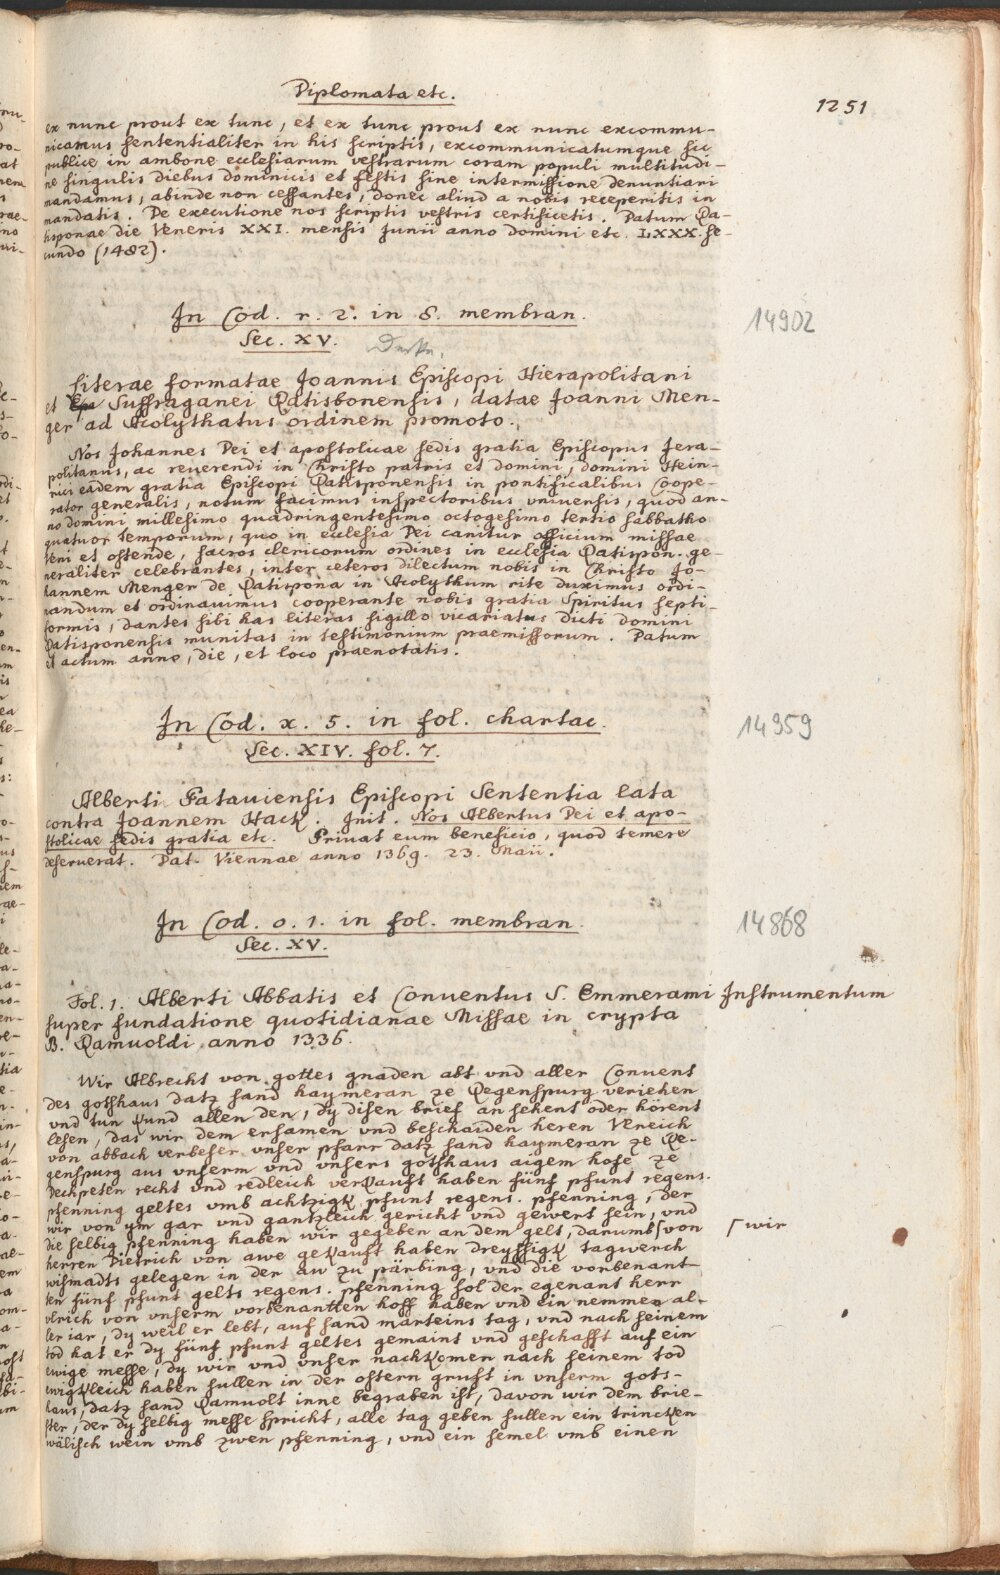 Diplomata etc.
1251
ex nunc prout ex tunc, et ex tunc prout ex nunc excommu-
nicamus sententialiter in his scriptis, excommunicatumque sic
publice in ambone ecclesiarum vestrarum coram populi multitudi-
ne singulis diebus dominicis et festis sine intermissione denuntiari
mandamus, abinde non cessantes, donec aliud a nobis receperitis in
mandatis. De executione nos scriptis vestris certificetis. Datum Ra-
tisponae die Veneris XXI. mensis Junii anno Domini etc. LXXX. se-
cundo (1482).
In Cod. r. 2. in 8. membran.
14902
Sec. XV.
Literae formatae Joannis Episcopi Hierapolitani
et Suffraganei Ratisbonensis, datae Joanni Men-
ger ad Acolythatus ordinem promoto.
Nos Johannes Dei et apostolicae sedis gratia Episcopus Jera-
politanus, ac reverendi in Christo patris et domini, domini Hein-
rici eadem gratia Episcopi Ratisponensis in pontificalibus Coope-
rator generalis, notum facimus inspectoribus universis, quod an-
no domini millesimo quadringentesimo octogesimo tertio sabbatho
quatuor temporum, quo in ecclesia Dei canitur officium missae
Veni et ostende, sacros clericorum ordines in ecclesia Ratispon. ge-
neraliter celebrantes, inter ceteros dilectum nobis in Christo Jo-
hannem Menger de Ratispona in Acolythum rite duximus ordi-
nandum et ordinavimus cooperante nobis gratia Spiritus septi-
formis, dantes sibi has literas sigillo vicariatus dicti domini
Ratisponensis munitas in testimonium praemissorum. Datum
et actum anno, die, et loco praenotatis.
In Cod. x. 5. in fol. chartac.
14959
Sec. XIV. fol. 7.
Alberti Patauiensis Episcopi Sententia lata
contra Joannem Hack. Init. Nos Albertus Dei et apo-
stolicae sedis gratia etc. Privat eum beneficio, quod temere
deseruerat. Dat. Viennae anno 1369. 23. Maii.
In Cod. o. 1. in fol. membran.
14868
Sec. XV.
Fol. 1. Alberti Abbatis et Conventus S. Emmerami Instrumentum
super fundatione quotidianae Missae in crypta
B. Ramuoldi anno 1336.
Wir Albrecht von gottes gnaden abt vnd aller Convent
des gotshaus datz sand haymeran ze Regenspurg veriehen
vnd tun kund allen den, dy disen brief an sehent oder hörent
lesen, das wir dem ersamen vnd beschaiden heren Vlreich
von abbach verbeser vnser pfarr datz sand haymeran ze Re-
genspurg aus vnserm vnd vnsers gotshaus aigem hofe ze
Deckpeten recht vnd redleich verkauft haben fünf pfunt regens.
pfenning geltes vmb achtzigk pfunt regens. pfenning, der
wir von ym gar vnd gantzleich gericht vnd gewert sein, vnd
die selbig pfenning haben wir gegeben an dem gelt, darumb ⌈von
⌈wir
herren Dietrich von awe gekauft haben dreyssigk tagwerch
wismadts gelegen in der aw zu pärbing, vnd die vorbenant-
ten fünf pfunt gelts regens. pfenning sol der egenant herr
vlrich von vnserm vorbenantten hoff haben vnd ein nemmen al-
ler iar, dy weil er lebt, auf sand marteins tag, vnd nach seinem
tod hat er dy fünf pfunt geltes gemaint vnd geschafft auf ein
ewige messe, dy wir vnd vnser nachkomen nach seinem tod
ewigkleich haben sullen in der ostern gruft in vnserm gots-
haus, datz sand Ramuolt inne begraben ist, davon wir dem brie-
ster, der dy selbig messe spricht, alle tag geben sullen ein trincken
wälisch wein vmb zwen pfenning, vnd ein semel vmb einen